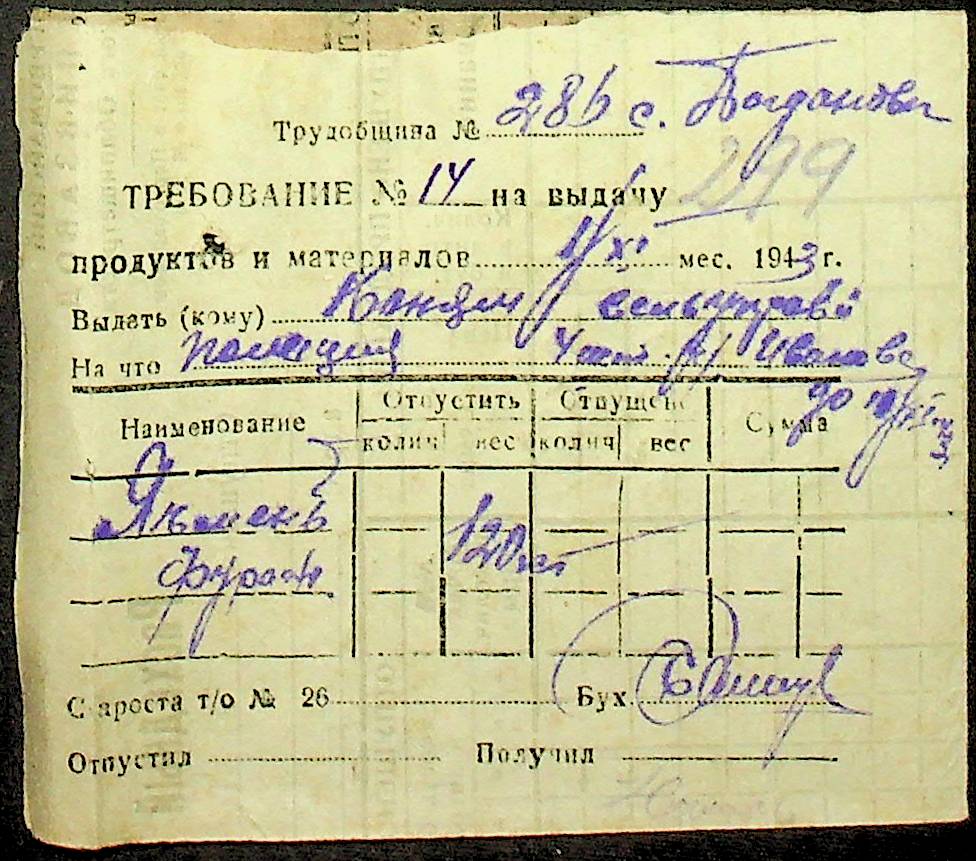 Трудобщина № 286 с. Богдановка
299
ТРЕБОВАНИЕ № 14 на выдачу
продуктов и материалов 1/XI мес. 1943 г.
Выдать (кому)
На что полиция
до 10/XI
Наименование Отпустить Отпущено Сумма
колич вес колич вес
Ячмень 120 кг
фураж
Староста т/о № 26 Бух.
Отпустил Получил